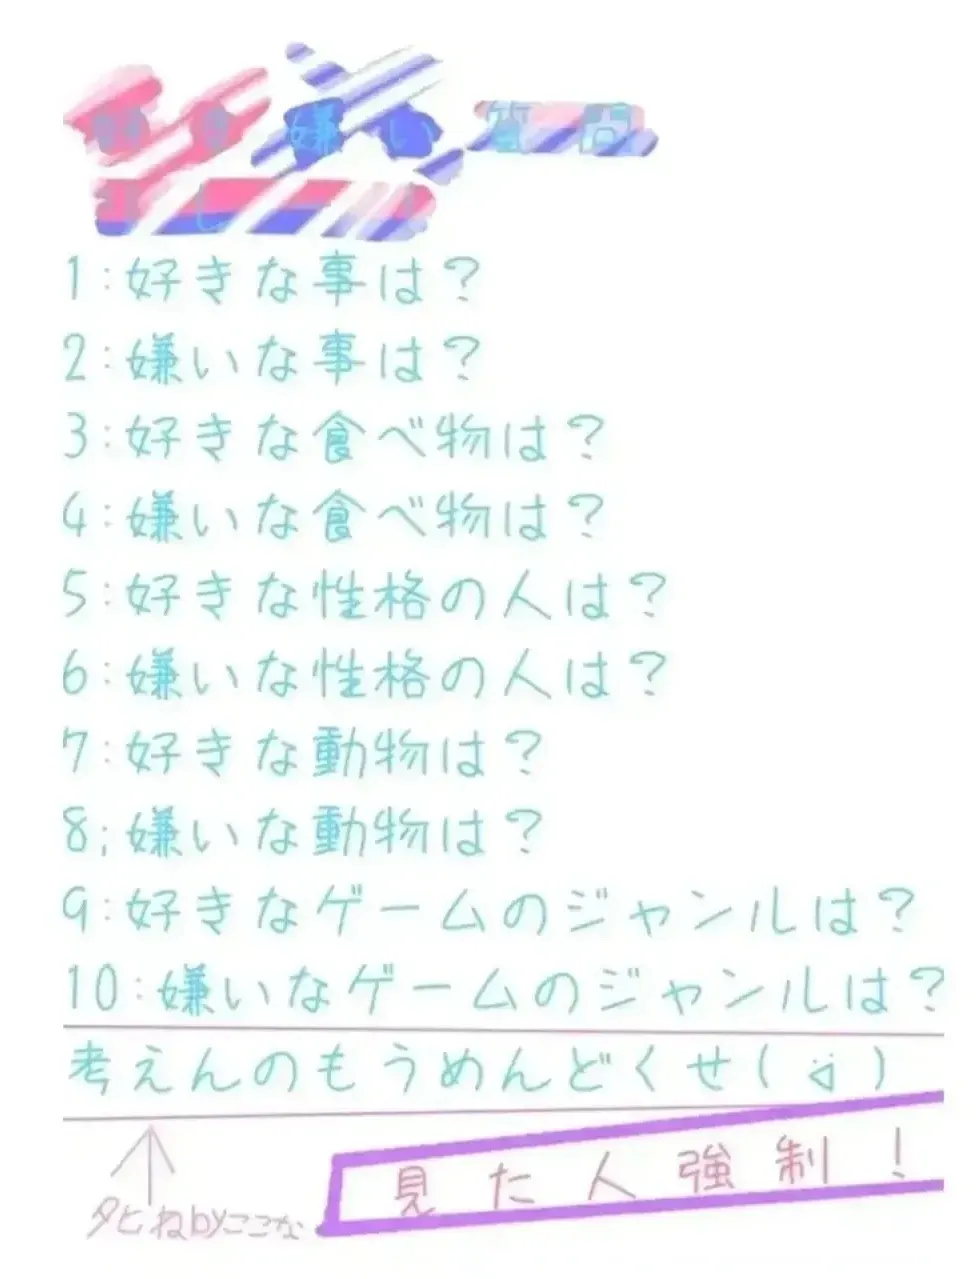 好き嫌い質問
1:好きな事は?
2:嫌いな事は?
3:好きな食べ物は?
4:嫌いな食べ物は?
5:好きな性格の人は?
6:嫌いな性格の人は?
7:好きな動物は?
8;嫌いな動物は?
9:好きなゲームのジャンルは?
10:嫌いなゲームのジャンルは?
考えんのもうめんどくせ( ー̀ )
見た人強制!
タヒねbyここな